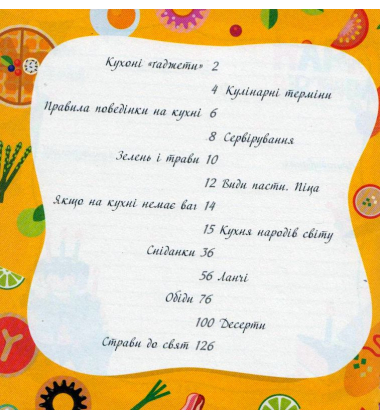 Кухоні «ґаджети» 2
4 Кулінарні терміни
Правила поведінки на кухні 6
8 Сервірування
Зелень і трави 10
12 Види пасти. Піца
Якщо на кухні немає ваг 14
15 Кухня народів світу
Сніданки 36
56 Ланчі
Обіди 76
100 Десерти
Страви до свят 126